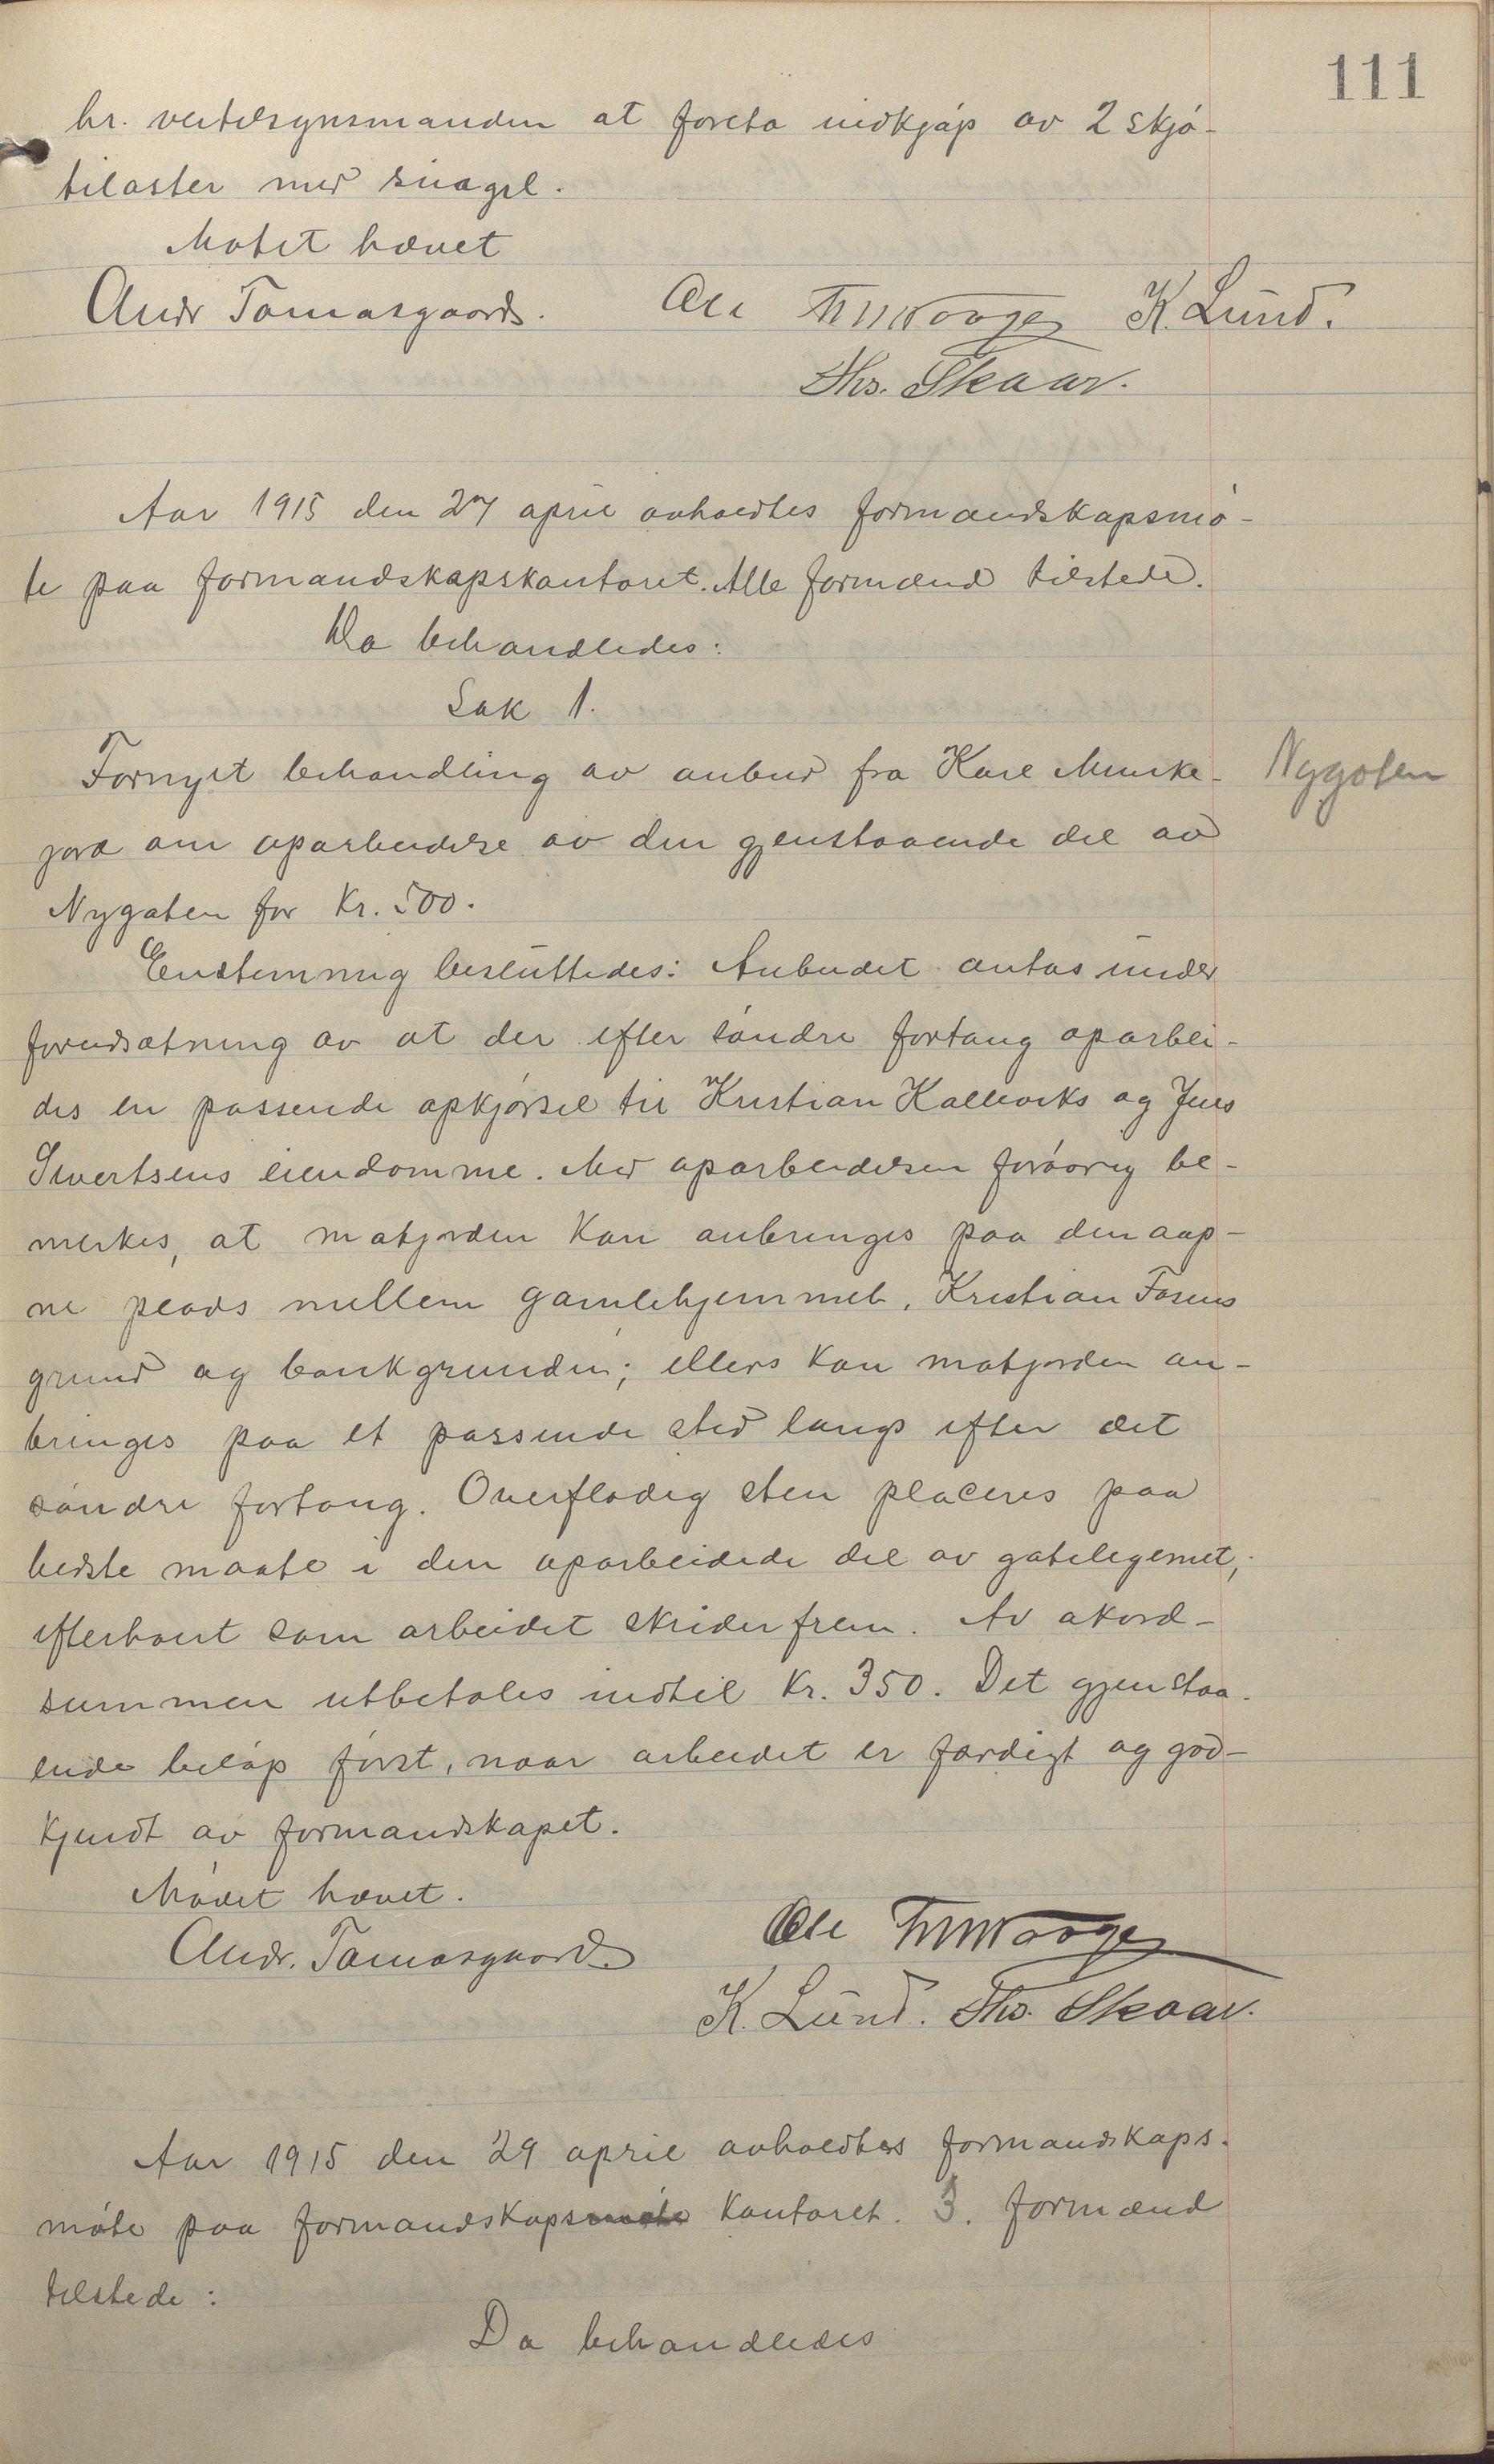 111
hr. veitilsynsmanden at foreta indkjøp av 2 skjø-
tilaster med
Møtet hævet
Andr Tomasgaard. Ole K. Lund.
Ths. Skaar.
Aar 1915 den 27 april avholdtes formandskapsmø-
te paa formandskapskontoret. Alle formænd tilstede.
Da behandledes:
Sak 1.
Fornyet behandling av anbud fra Karl Munke-
jord om oparbeidelse av den gjenstaaende del av
Nygaten
Nygaten for Kr. 500.
Enstemmig besluttedes: Anbudet antas under
forudsætning av at der efter søndre fortaug oparbei-
des en passende opkjørsel til Kristian Kalleviks og Jens
Sivertsens eiendomme. Med oparbeidelsen forøvrig be-
merkes, at matjorden kan anbringes paa den aap-
ne plads mellem gamlehjemmet, Kristian Fosens
grund og bankgrunden; ellers kan matjorden an-
bringes paa et passende sted langs efter det
søndre fortaug. Overflødig sten placeres paa
bedste maate i den oparbeidede del av gatelegemet,
efterhvert som arbeidet skrider frem. Av akord-
summen utbetales indtil Kr. 350. Det gjenstaa-
ende beløp først, naar arbeidet er færdigt og god-
kjendt av formandskapet.
Mødet hævet.
Andr. Tomasgaard. Ole
K. Lund. Ths. Skaar.
Aar 1915 den 29 april avholdtes formandskaps-
møte paa formandskapsmøte kontoret. 3. formænd
tilstede:
Da behandledes